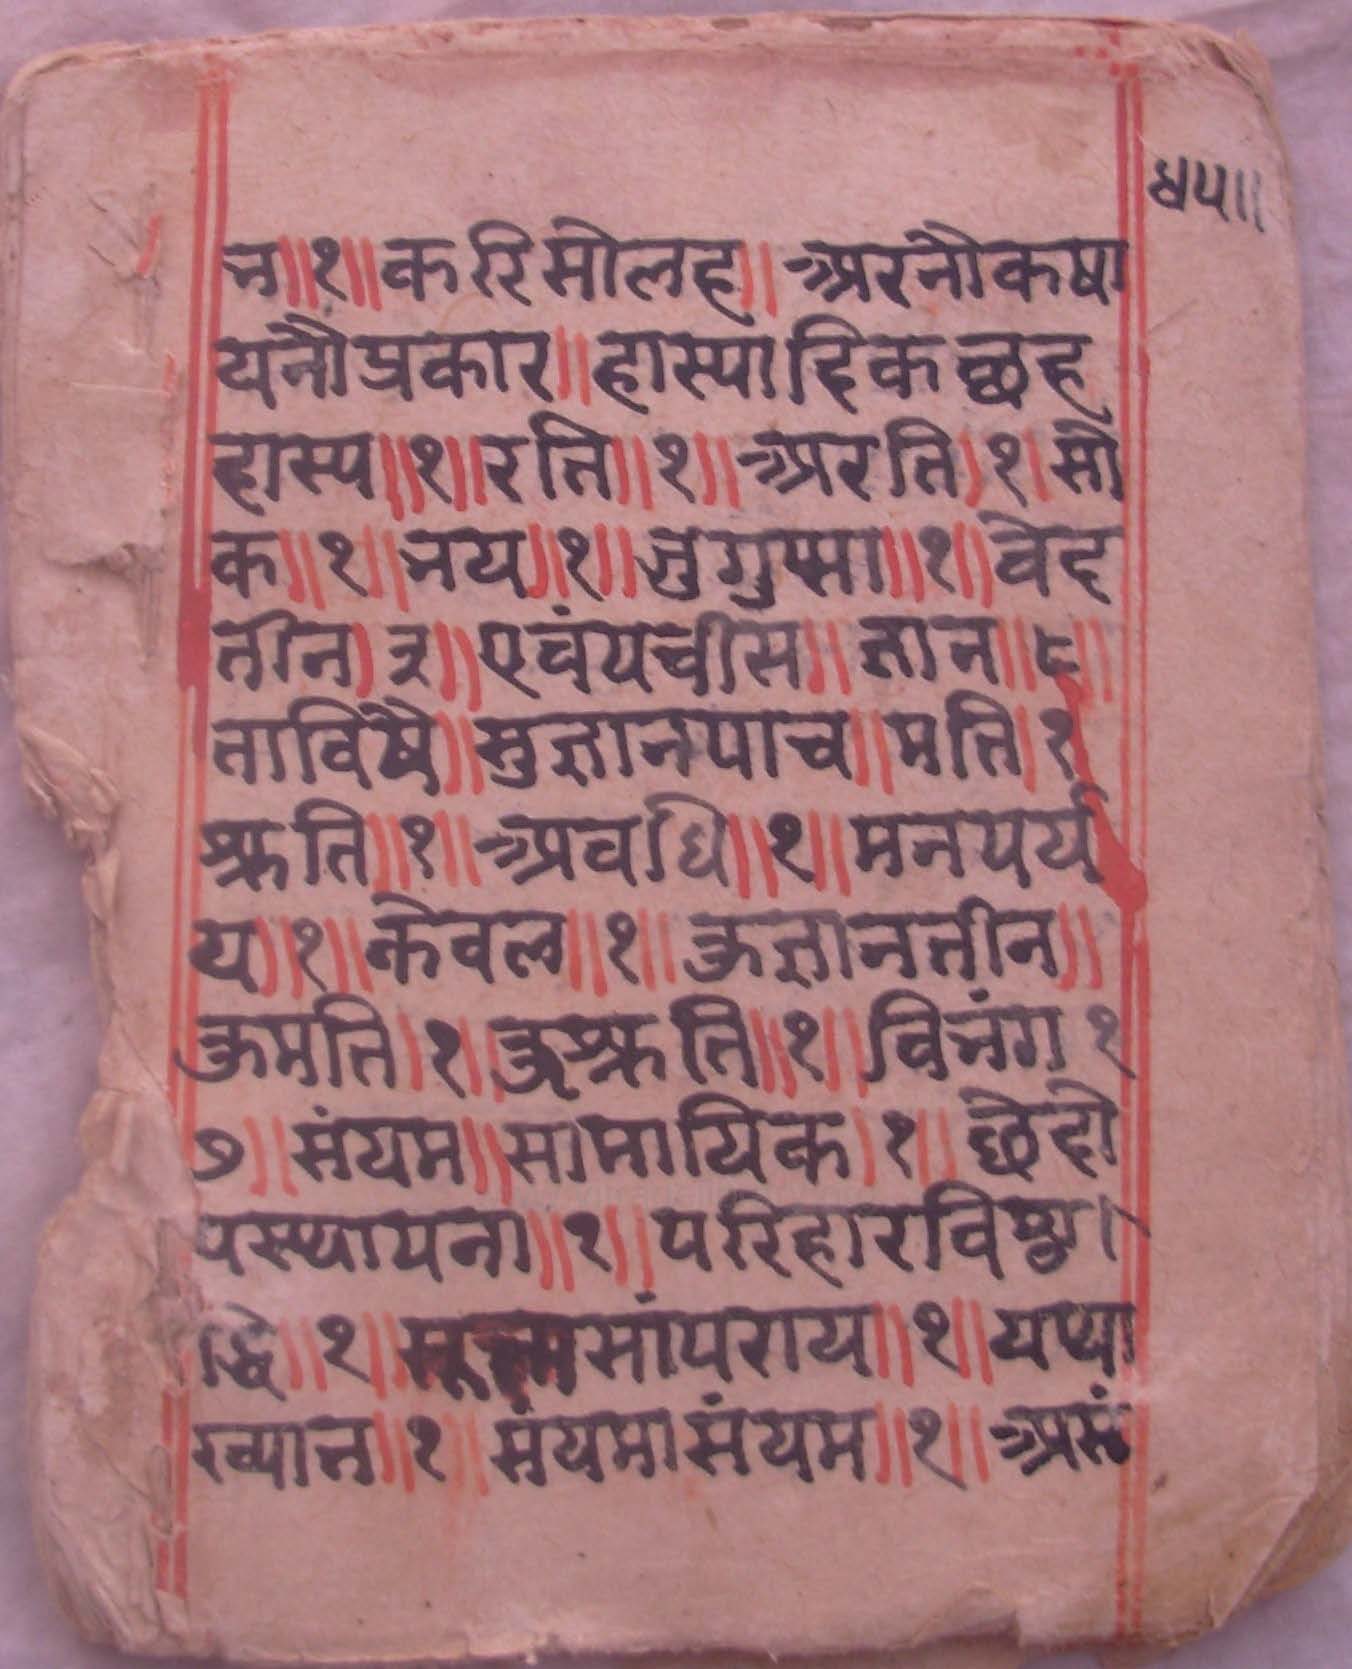 ४५॥
न॥१॥करिसोलह॥अरनोकषा
यनौप्रकार॥हास्यादिकछह
हास्य॥१॥रति॥१॥अरति।१।सो
क॥१॥भय॥१॥जुगुप्सा॥१॥वेद
तीन।३॥एवंपचीस॥ज्ञान॥८॥
ताविषै॥सुज्ञानपाच॥मति।१
श्रुति॥१॥अवधि॥१॥मनपर्य
य॥१॥केवल॥१॥कुज्ञानतीन॥
कुमति।१।कुश्रुति॥१॥विभंग१
७॥संयम॥सामायिक।१॥छेदो
पस्थापना॥१॥परिहारविशु।
द्धि॥१॥सूक्ष्मसांपराय॥१॥यथा
ख्यात॥१॥संयमासंयम॥१॥असं